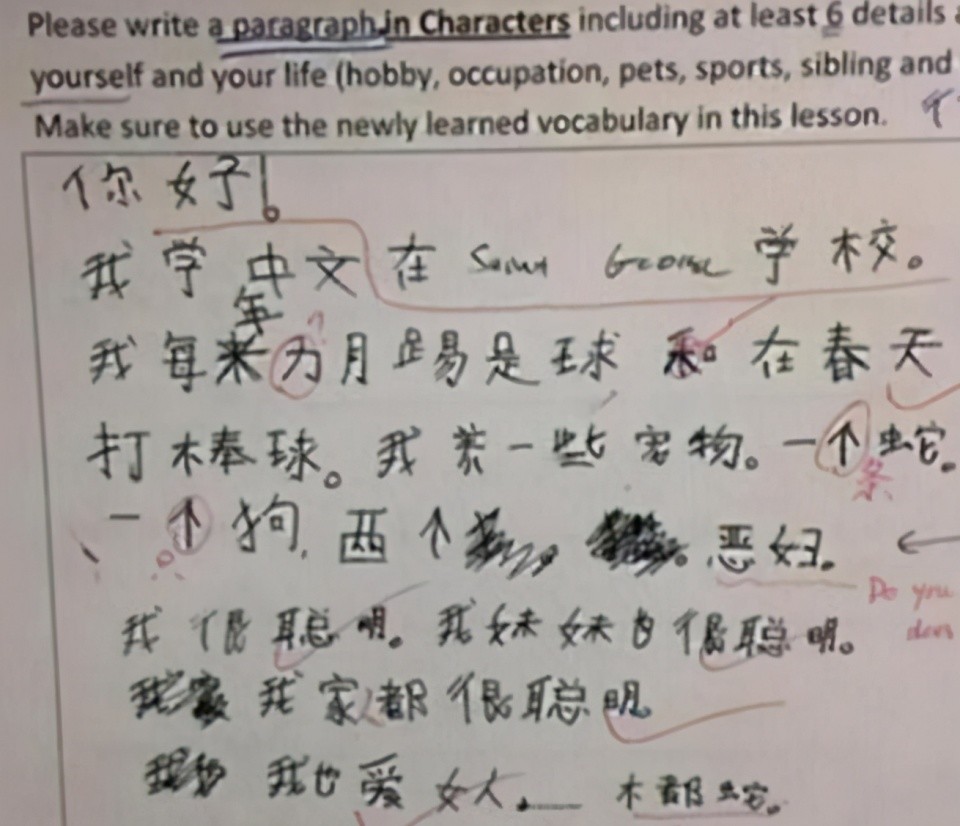 Please write a paragraph in Characters including at least 6 details
yourself and your life (hobby, occupation, pets, sports, sibling and
Make sure to use the newly learned vocabulary in this lesson. 个
你好!
我学中文在 学校。
年
我每 月踢是球 在春天
打棒球。我养一些宠物。一个蛇。
条
一个狗, 两个 恶
Do you
我很聪明。我妹妹也很聪明。
我家都很聪明
我也爱女人. 蛇。